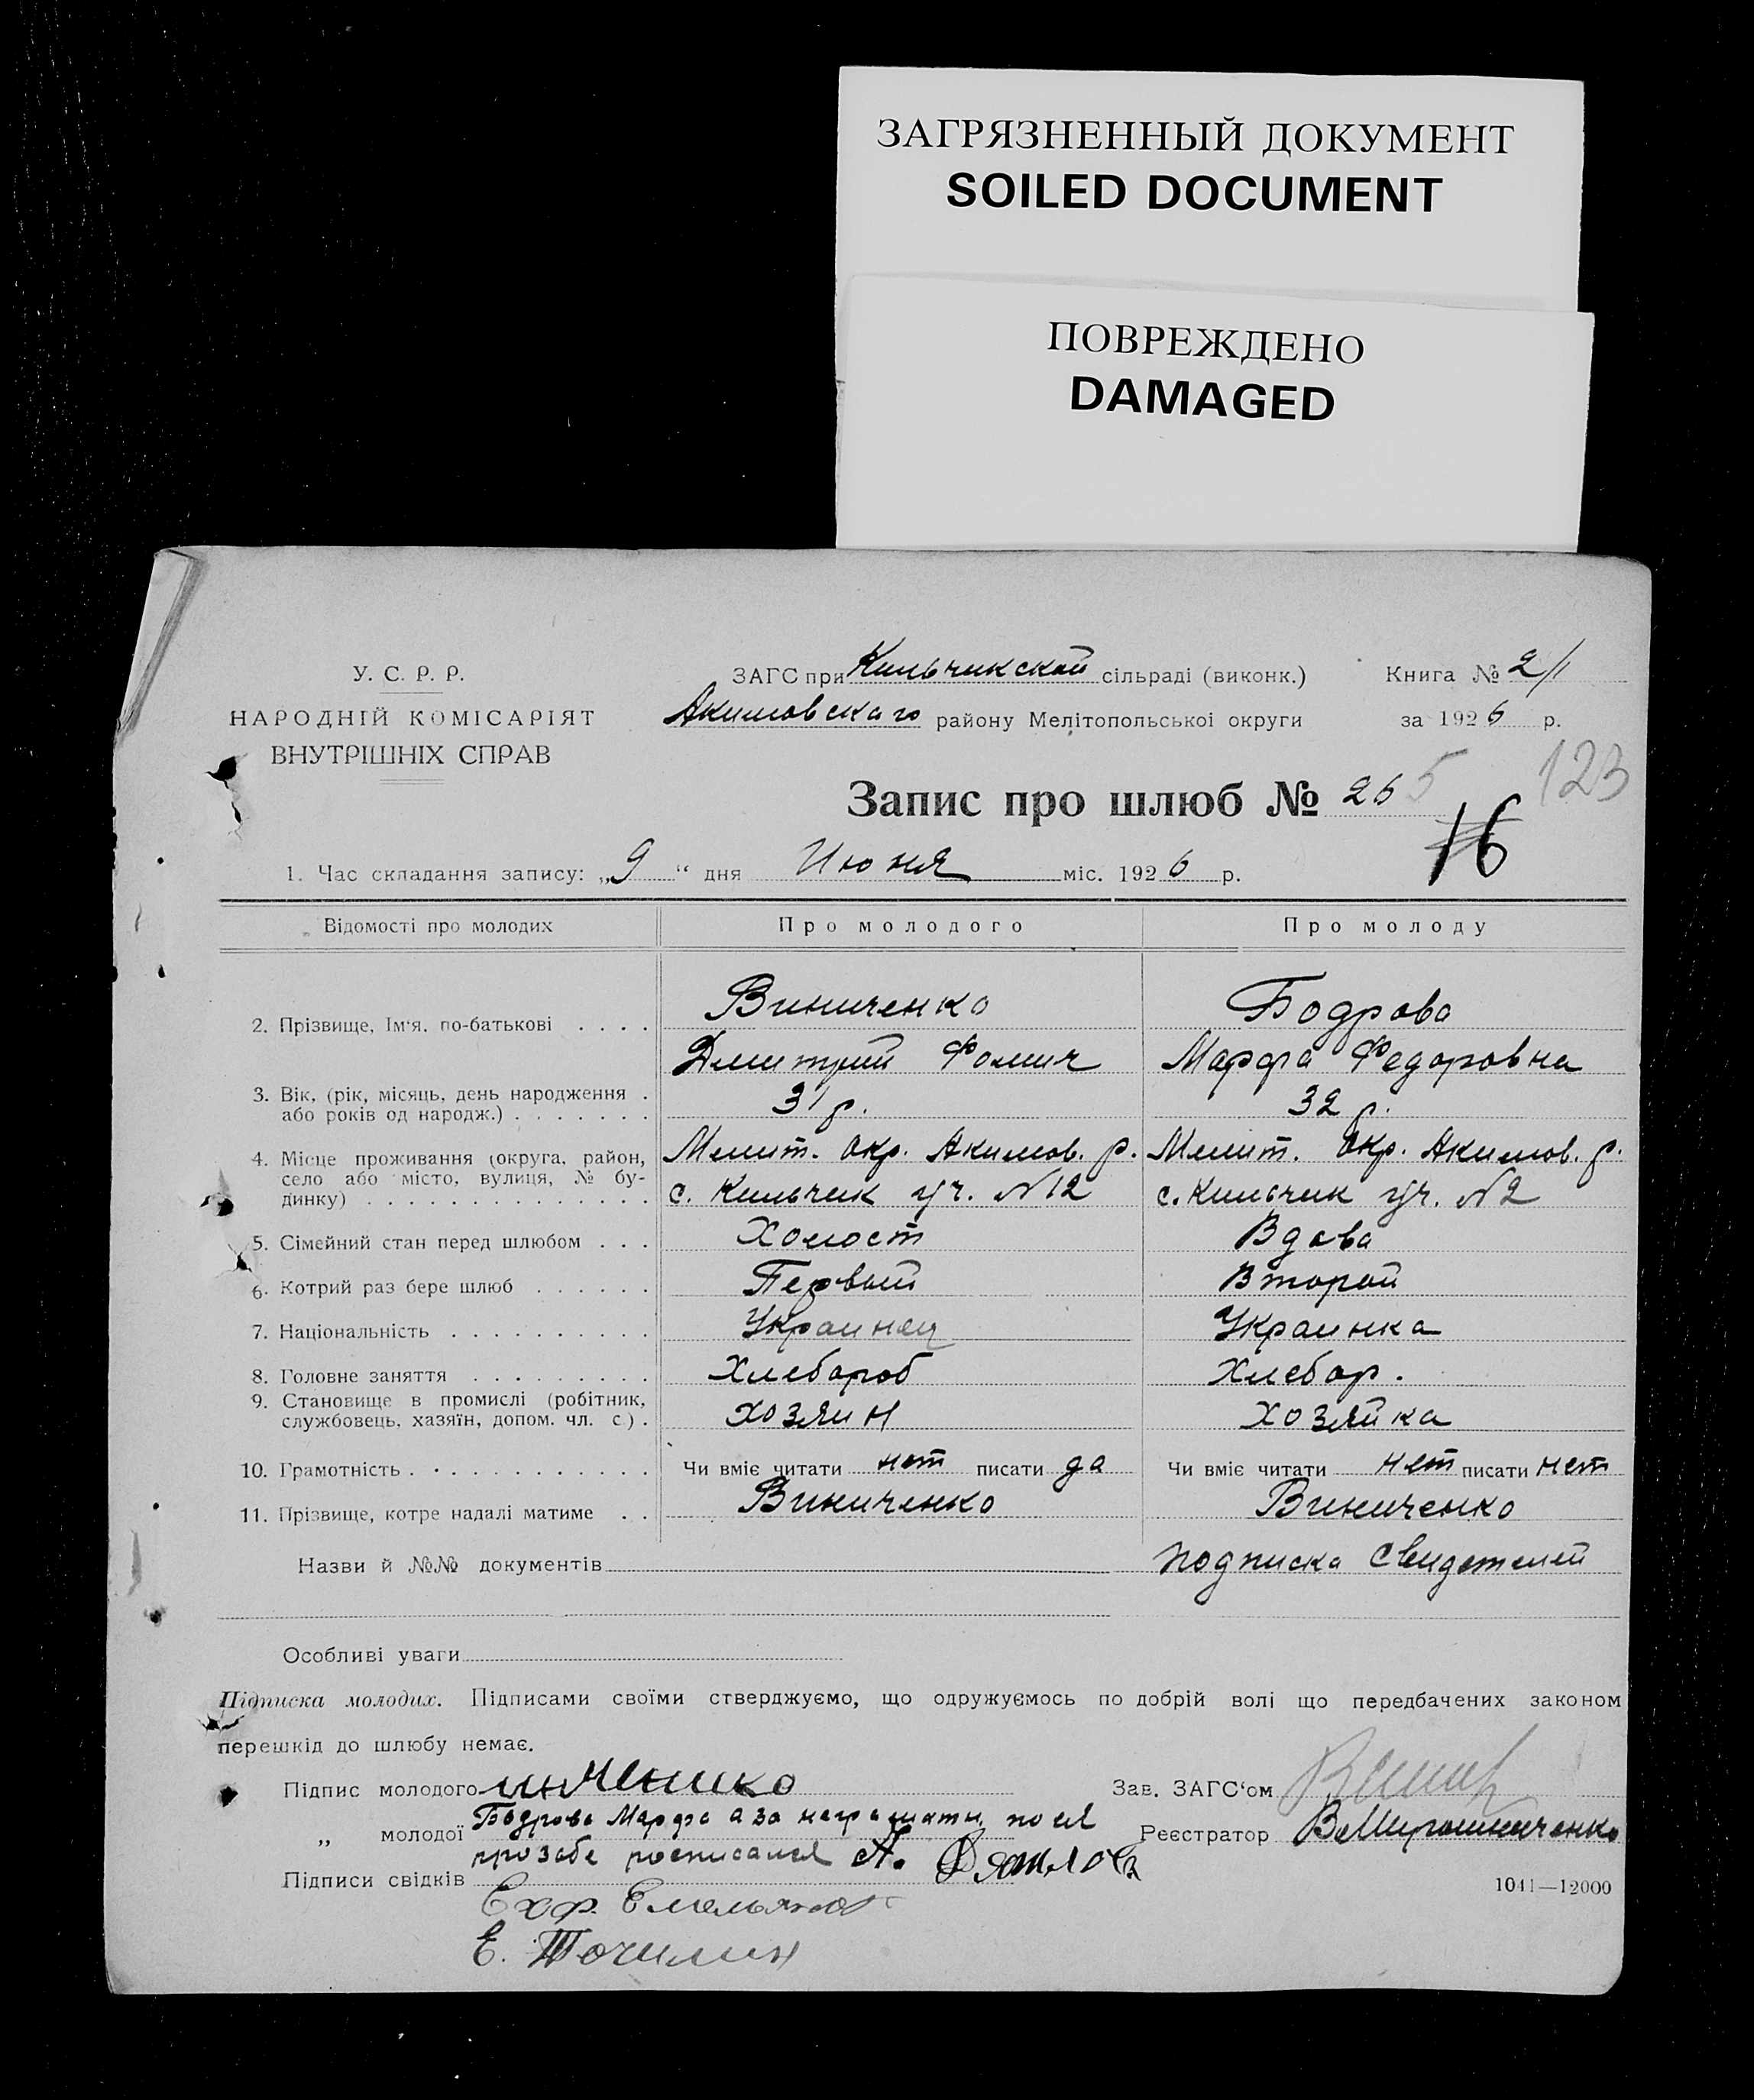 ЗАГРЯЗНЕННЫЙ ДОКУМЕНТ
SOILED DOCUMENT
ПОВРЕЖДЕНО
DAMAGED
У. С. Р. Р.
НАРОДНІЙ КОМІСАРІЯТ
ВНУТРІШНІХ СПРАВ
ЗАГС при Кильчикской сільраді (виконк.)
Акимовскаго району Мелітопольської округи
Книга № 2/1
за 1926 р.
123
Запис про шлюб № 265
16
1. Час складання запису: „9“ дня Июня міс. 1926 р.
Відомості про молодих Про молодого Про молоду
2. Прізвище, Ім'я, по-батькові . . . . Виниченко Бодрова
Дмитрий Фомич Марфа Федоровна
3. Вік, (рік, місяць, день народження .
або років од народж.) . . . . . . . 31 р. 32 р.
4. Місце проживання (округа, район, Мелит. Окр. Акимов. р. Мелит. Окр. Акимов. р.
село або місто, вулиця, № бу-
динку) . . . . . . . . . . . . . . с. Кильчик уч. №12 с. Кильчик уч. №2
5. Сімейний стан перед шлюбом . . . Холост Вдова
6. Котрий раз бере шлюб . . . . . . Первый Второй
7. Національність . . . . . . . . . . Украинец Украинка
8. Головне заняття . . . . . . . . . Хлебороб Хлебор.
9. Становище в промислі (робітник,
службовець, хазяїн, допом. чл. с.) . хозяин хозяйка
10. Грамотність . . . . . . . . . . . . Чи вміє читати нет писати да Чи вміє читати нет писати нет
11. Прізвище, котре надалі матиме . . Виниченко Виниченко
Назви й №№ документів подписка Свидетелей
Особливі уваги
Підписка молодих. Підписами своїми стверджуємо, що одружуємось по добрій волі що передбачених законом
перешкід до шлюбу немає.
Підпис молодого
Зав. ЗАГС'ом
„ молодої Бодрова Марфа а за неграмотн. по ея
прозьбе росписался А.
Реєстратор ВМирошниченко
Підписи свідків
1041—12000
Емельянов
Е. Точилин